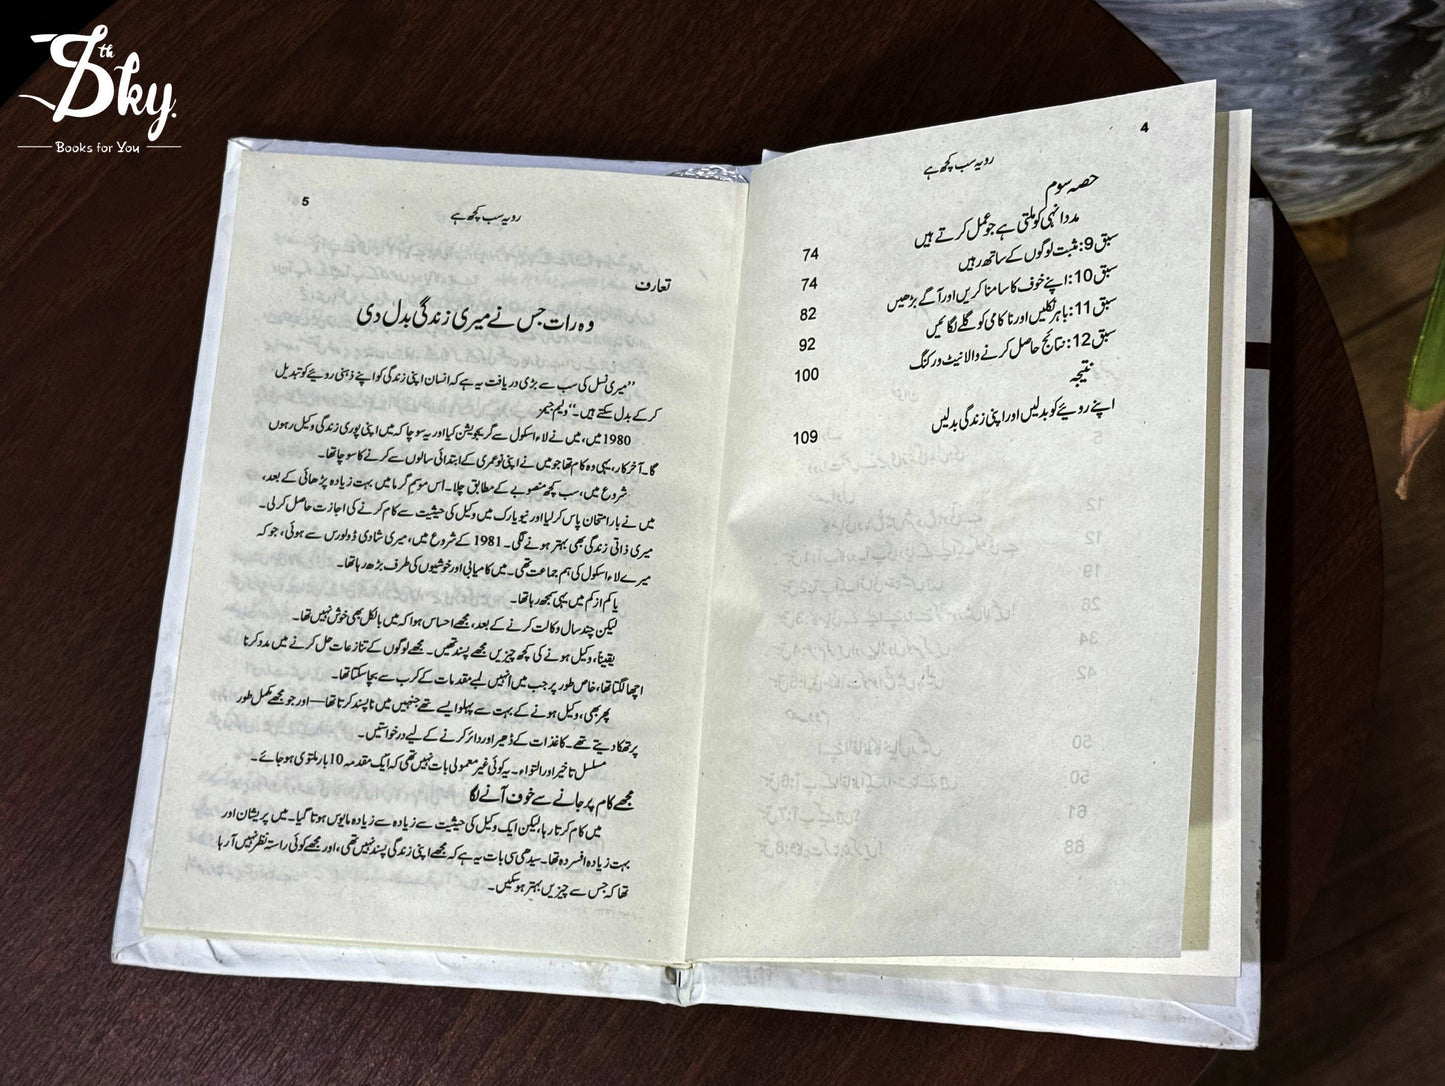 8th Sky.
Books for You
4
رویہ سب کچھ ہے
حصہ سوم
مدد انہی کو ملتی ہے جو عمل کرتے ہیں 74
سبق 9: مثبت لوگوں کے ساتھ رہیں 74
سبق 10: اپنے خوف کا سامنا کریں اور آگے بڑھیں 82
سبق 11: باہر نکلیں اور ناکامی کو گلے لگائیں 92
سبق 12: نتائج حاصل کرنے والا نیٹ ورکنگ 100
نتیجہ
اپنے رویئے کو بدلیں اور اپنی زندگی بدلیں 109
5
رویہ سب کچھ ہے
تعارف
وہ رات جس نے میری زندگی بدل دی
”میری نسل کی سب سے بڑی دریافت یہ ہے کہ انسان اپنی زندگی کو اپنے ذہنی رویئے کو تبدیل
کر کے بدل سکتے ہیں۔“ ولیم جیمز
1980 میں، میں نے لاء اسکول سے گریجویشن کیا اور یہ سوچا کہ میں اپنی پوری زندگی وکیل رہوں
گا۔ آخر کار، یہی وہ کام تھا جو میں نے اپنی نوعمری کے ابتدائی سالوں سے کرنے کا سوچا تھا۔
شروع میں، سب کچھ منصوبے کے مطابق چلا۔ اس موسم گرما میں بہت زیادہ پڑھائی کے بعد،
میں نے بار امتحان پاس کر لیا اور نیویارک میں وکیل کی حیثیت سے کام کرنے کی اجازت حاصل کر لی۔
میری ذاتی زندگی بھی بہتر ہونے لگی۔ 1981 کے شروع میں، میری شادی ڈولورس سے ہوئی، جو کہ
میرے لاء اسکول کی ہم جماعت تھی۔ میں کامیابی اور خوشیوں کی طرف بڑھ رہا تھا۔
یا کم از کم میں یہی سمجھ رہا تھا۔
لیکن چند سال وکالت کرنے کے بعد، مجھے احساس ہوا کہ میں بالکل بھی خوش نہیں تھا۔
یقیناً، وکیل ہونے کی کچھ چیزیں مجھے پسند تھیں۔ مجھے لوگوں کے تنازعات حل کرنے میں مدد کرنا
اچھا لگتا تھا، خاص طور پر جب میں انہیں لمبے مقدمات کے کرب سے بچا سکتا تھا۔
پھر بھی، وکیل ہونے کے بہت سے پہلو ایسے تھے جنہیں میں ناپسند کرتا تھا—اور جو مجھے مکمل طور
پر تھکا دیتے تھے۔ کاغذات کے ڈھیر اور دائر کرنے کے لیے درخواستیں۔
مسلسل تاخیر اور التواء۔ یہ کوئی غیر معمولی بات نہیں تھی کہ ایک مقدمہ 10 بار ملتوی ہو جائے۔
مجھے کام پر جانے سے خوف آنے لگا
میں کام کرتا رہا، لیکن ایک وکیل کی حیثیت سے زیادہ سے زیادہ مایوس ہوتا گیا۔ میں پریشان اور
بہت زیادہ افسردہ تھا۔ سیدھی سی بات یہ ہے کہ مجھے اپنی زندگی پسند نہیں تھی، اور مجھے کوئی راستہ نظر نہیں آ رہا
تھا کہ جس سے چیزیں بہتر ہو سکیں۔